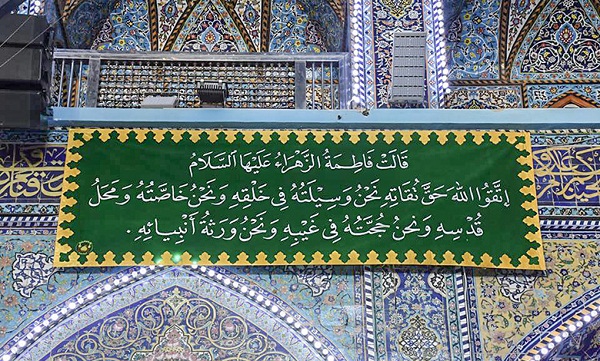 قَالَتْ فَاطِمَةُ الزَّهْرَاءُ عَلَيْهَا السَّلَامُ
اِتَّقُوا اللهَ حَقَّ تُقَاتِهِ نَحْنُ وَسِيلَتُهُ فِي خَلْقِهِ وَنَحْنُ خَاصَّتُهُ وَمَحَلُّ
قُدْسِهِ وَنَحْنُ حُجَّتُهُ فِي غَيْبِهِ وَنَحْنُ وَرَثَةُ أَنْبِيَائِهِ .